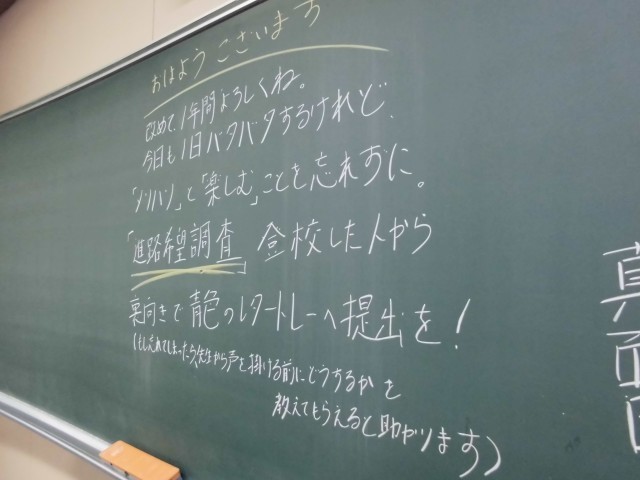 おはようございます
改めて、1年間よろしくね。
今日も1日バタバタするけれど、
「メリハリ」と「楽しむ」ことを忘れずに。
「進路希望調査」登校した人から
裏向きで青色のレタートレーへ提出を!
(もし忘れてしまったら、先生から声を掛ける前にどうするかを
教えてもらえると助かります)
真面